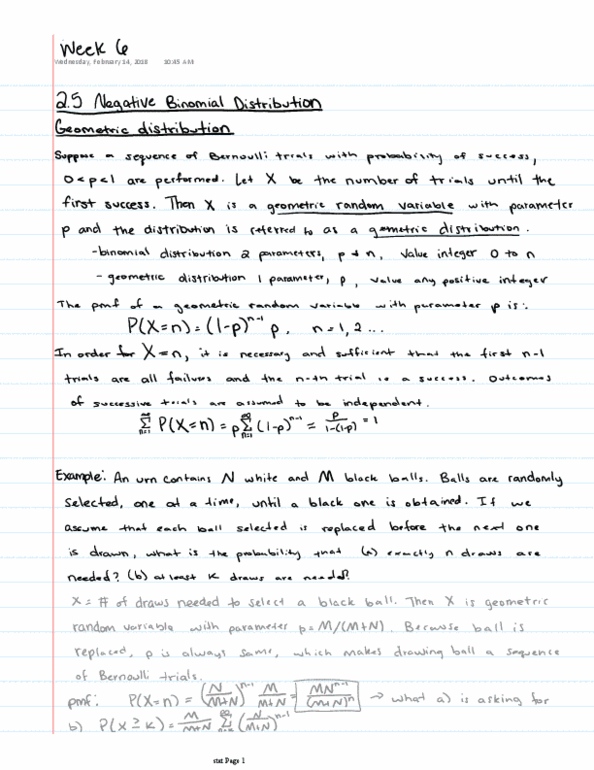 Week 6
Wednesday, February 14, 2018 10:45 AM
2.5 Negative Binomial Distribution
Geometric distribution
Suppose a sequence of Bernoulli trials with probability of success,
0<p<1 are performed. Let X be the number of trials until the
first success. Then X is a geometric random variable with parameter
p and the distribution is referred to as a geometric distribution.
-binomial distribution 2 parameters, p + n, value integer 0 to n
- geometric distribution 1 parameter, p, value any positive integer
The pmf of a geometric random variable with parameter p is:
P(X=n) = (1-p)^{n-1} p, n = 1, 2 ...
In order for X = n, it is necessary and sufficient that the first n-1
trials are all failures and the n-th trial is a success. Outcomes
of successive trials are assumed to be independent.
∑_{n=1}^{∞} P(X=n) = p∑_{n=1}^{∞} (1-p)^{n-1} = p/(1-(1-p)) = 1
Example: An urn contains N white and M black balls. Balls are randomly
selected, one at a time, until a black one is obtained. If we
assume that each ball selected is replaced before the next one
is drawn, what is the probability that (a) exactly n draws are
needed? (b) at least k draws are needed?
X = # of draws needed to select a black ball. Then X is geometric
random variable with parameter p = M/(M+N). Because ball is
replaced, p is always same, which makes drawing ball a sequence
of Bernoulli trials.
pmf: P(X=n) = (N/(M+N))^{n-1} M/(M+N) = MN^{n-1}/(M+N)^n → what a) is asking for
b) P(X ≥ k) = M/(M+N) ∑_{n=k}^{∞} (N/(M+N))^{n-1}
stat Page 1